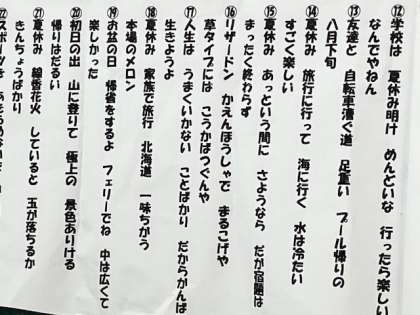 ⑫学校は 夏休み明け めんどいな 行ったら楽しい
なんでやねん
⑬友達と 自転車漕ぐ道 足重い プール帰りの
八月下旬
⑭夏休み 旅行に行って 海に行く 水は冷たい
すごく楽しい
⑮夏休み あっという間に さようなら だが宿題は
まったく終わらず
⑯リザードン かえんほうしゃで まるこげや
草タイプには こうかばつぐんや
⑰人生は うまくいかない ことばかり だからがんば
生きようよ
⑱夏休み 家族で旅行 北海道 一味ちがう
本場のメロン
⑲お盆の日 帰省をするよ フェリーでね 中は広くて
楽しかった
⑳初日の出 山に登りて 極上の 景色ありける
帰りはだるい
㉑夏休み 線香花火 していると 玉が落ちるか
きんちょうばかり